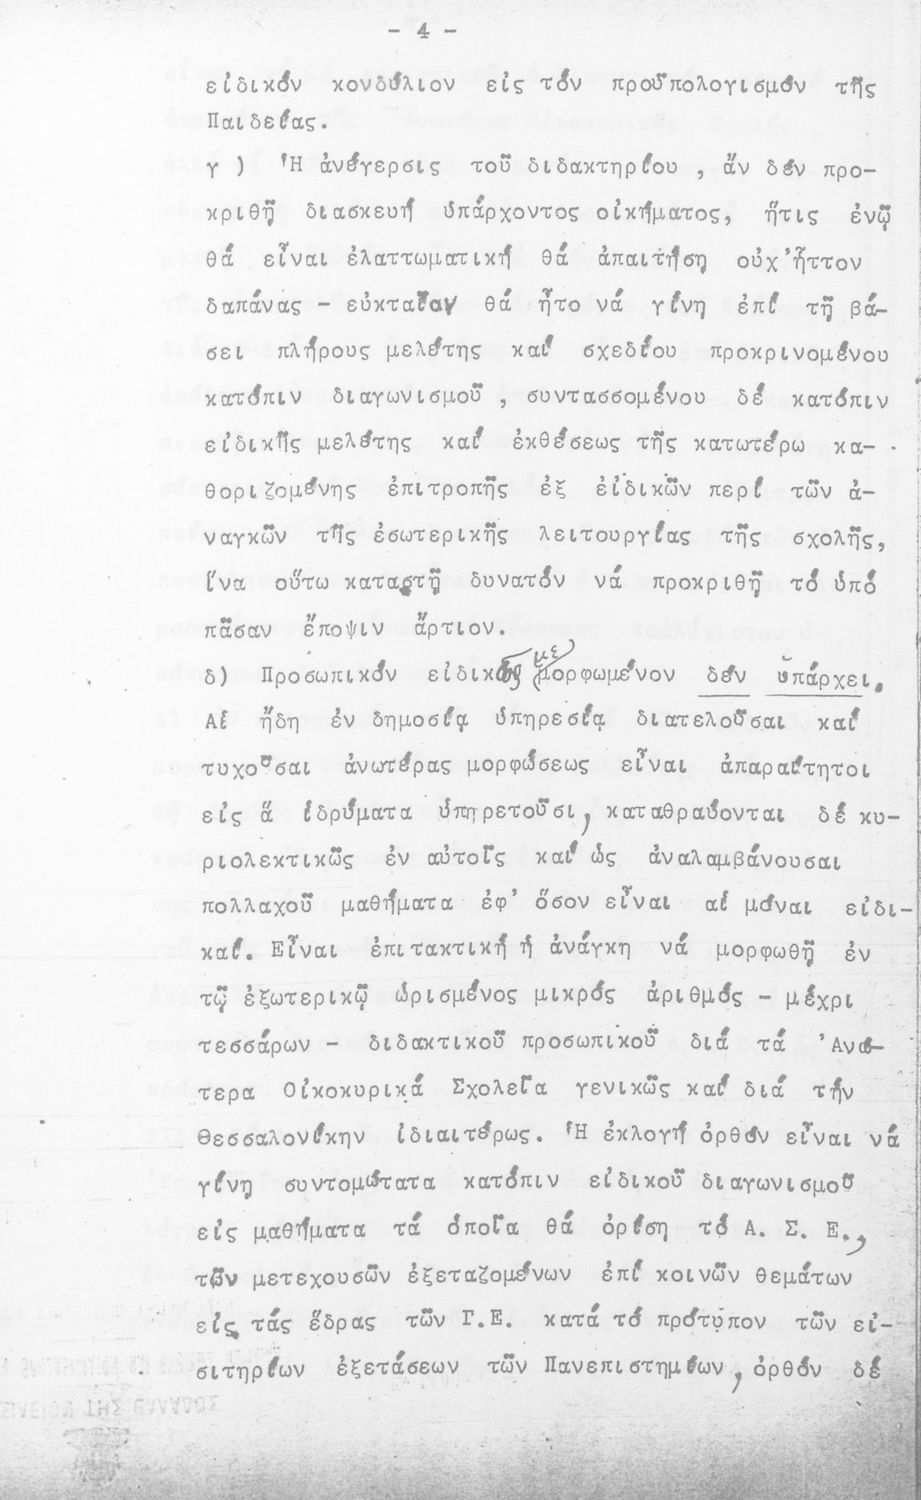 - 4 -
εἰδικόν κονδύλιον εἰς τόν προϋπολογισμόν τῆς
Παιδείας.
γ ) Ἡ ἀνέγερσις τοῦ διδακτηρίου , ἄν δέν προ-
κριθῇ διασκευή ὑπάρχοντος οἰκήματος, ἥτις ἐνῷ
θά εἶναι ἐλαττωματική θά ἀπαιτήση οὐχ'ἧττον
δαπάνας - εὐκταῖον θά ἦτο νά γίνη ἐπί τῇ βά-
σει πλήρους μελέτης καί σχεδίου προκρινομένου
κατόπιν διαγωνισμοῦ , συντασσομένου δέ κατόπιν
εἰδικῆς μελέτης καί ἐκθέσεως τῆς κατωτέρω κα-
θοριζομένης ἐπιτροπῆς ἐξ εἰδικῶν περί τῶν ἀ-
ναγκῶν τῆς ἐσωτερικῆς λειτουργίας τῆς σχολῆς,
ἵνα οὕτω καταστῇ δυνατόν νά προκριθῇ τό ὑπό
πᾶσαν ἔποψιν ἄρτιον.
δ) Προσωπικόν εἰδικῶς μεμορφωμένον δέν ὑπάρχει.
Αἱ ἤδη ἐν δημοσίᾳ ὑπηρεσίᾳ διατελοῦσαι καί
τυχοῦσαι ἀνωτέρας μορφώσεως εἶναι ἀπαραίτητοι
εἰς ἅ ἱδρύματα ὑπηρετοῦσι, καταθραύονται δέ κυ-
ριολεκτικῶς ἐν αὐτοῖς καί ὡς ἀναλαμβάνουσαι
πολλαχοῦ μαθήματα ἐφ' ὅσον εἶναι αἱ μόναι εἰδι-
καί. Εἶναι ἐπιτακτική ἡ ἀνάγκη νά μορφωθῇ ἐν
τῷ ἐξωτερικῷ ὡρισμένος μικρός ἀριθμός - μέχρι
τεσσάρων - διδακτικοῦ προσωπικοῦ διά τά 'Ανώ-
τερα Οἰκοκυρικά Σχολεῖα γενικῶς καί διά τήν
Θεσσαλονίκην ἰδιαιτέρως. Ἡ ἐκλογή ὀρθόν εἶναι νά
γίνη συντομώτατα κατόπιν εἰδικοῦ διαγωνισμοῦ
εἰς μαθήματα τά ὁποῖα θά ὁρίση τό Α. Σ. Ε.,
τῶν μετεχουσῶν ἐξεταζομένων ἐπί κοινῶν θεμάτων
εἰς τάς ἕδρας τῶν Γ.Ε. κατά τό πρότυπον τῶν εἰ-
σιτηρίων ἐξετάσεων τῶν Πανεπιστημίων, ὀρθόν δέ